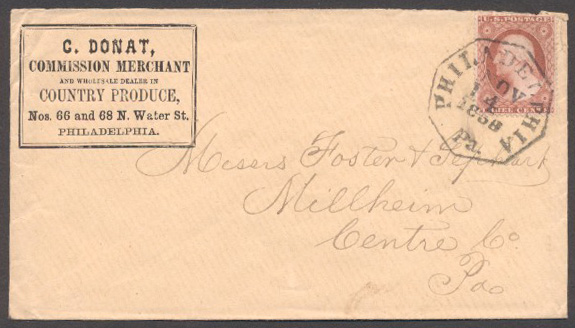 C. DONAT,
COMMISSION MERCHANT
AND WHOLESALE DEALER IN
COUNTRY PRODUCE,
Nos. 66 and 68 N. Water St.
PHILADELPHIA.
U.S. POSTAGE
CENTS
PHILADELPHIA
NOV
14
1858
Pa.
Messrs Foster &
Millheim
Centre Co
Pa